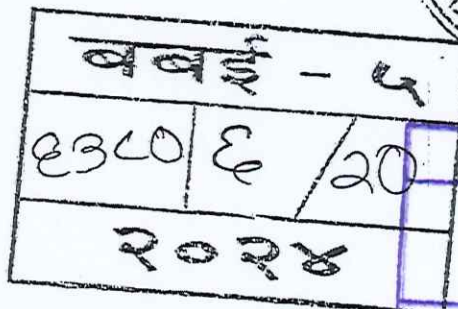 बबई - ५
६३८० ६ /20
२०२४